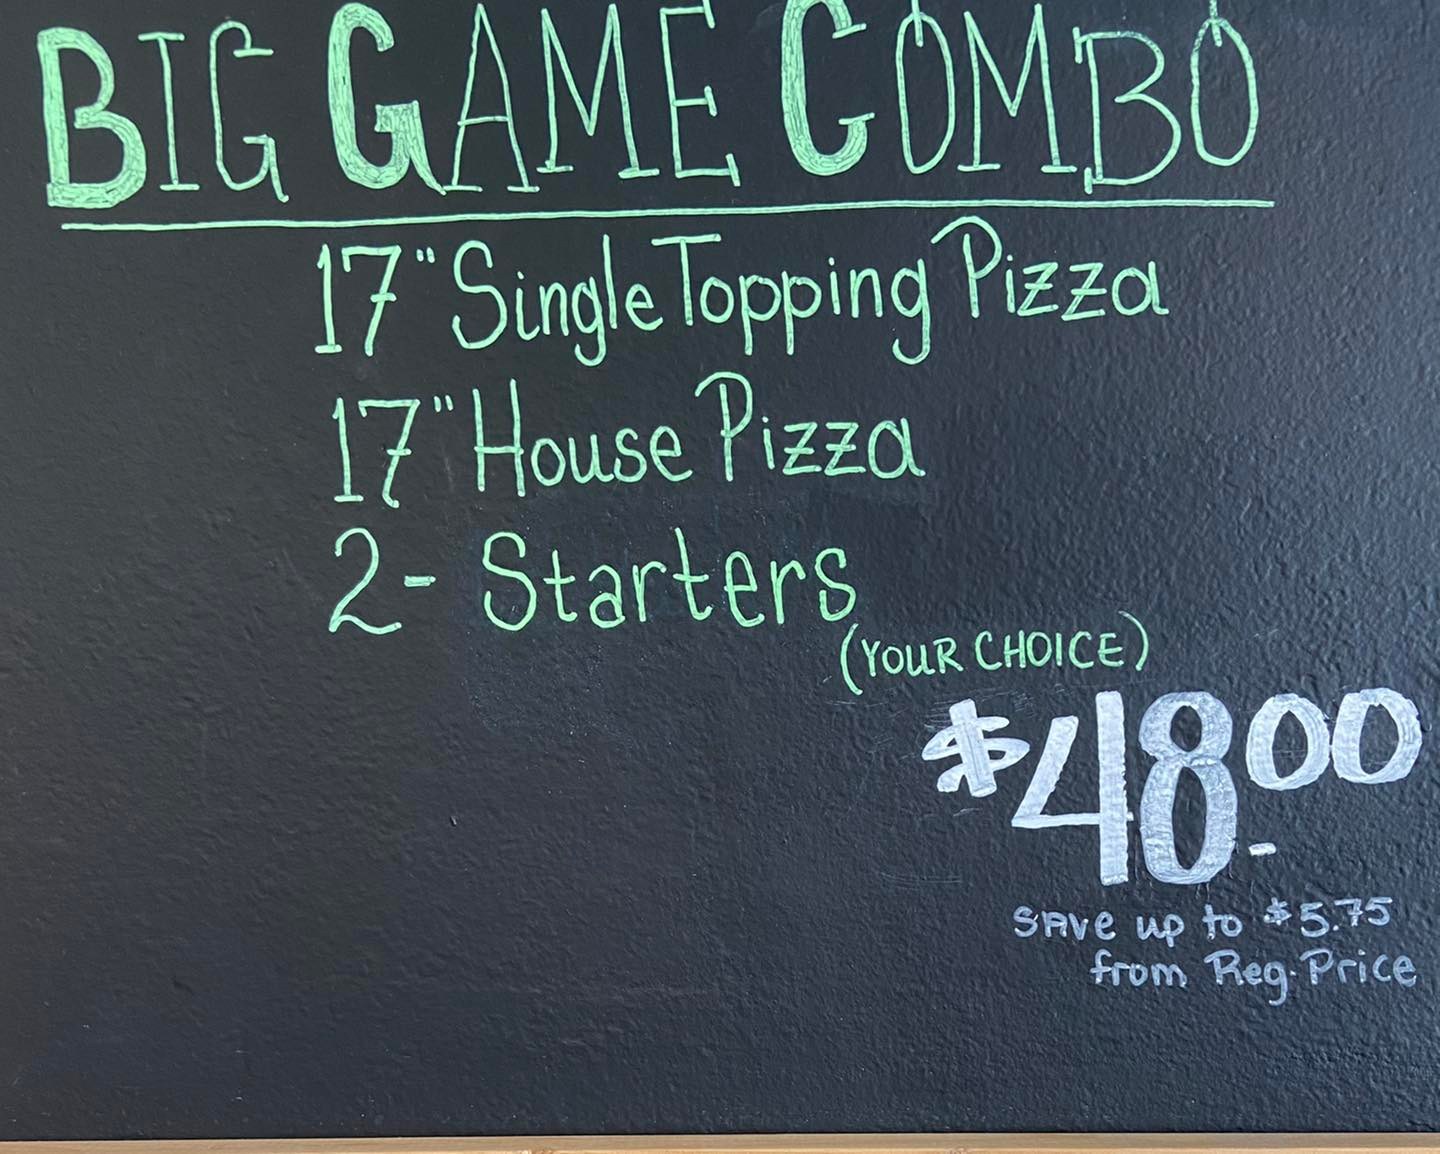 BIG GAME COMBO
17" Single Topping Pizza
17" House Pizza
2- Starters
(YOUR CHOICE)
$48.00
SAVE up to $5.75
from Reg. Price